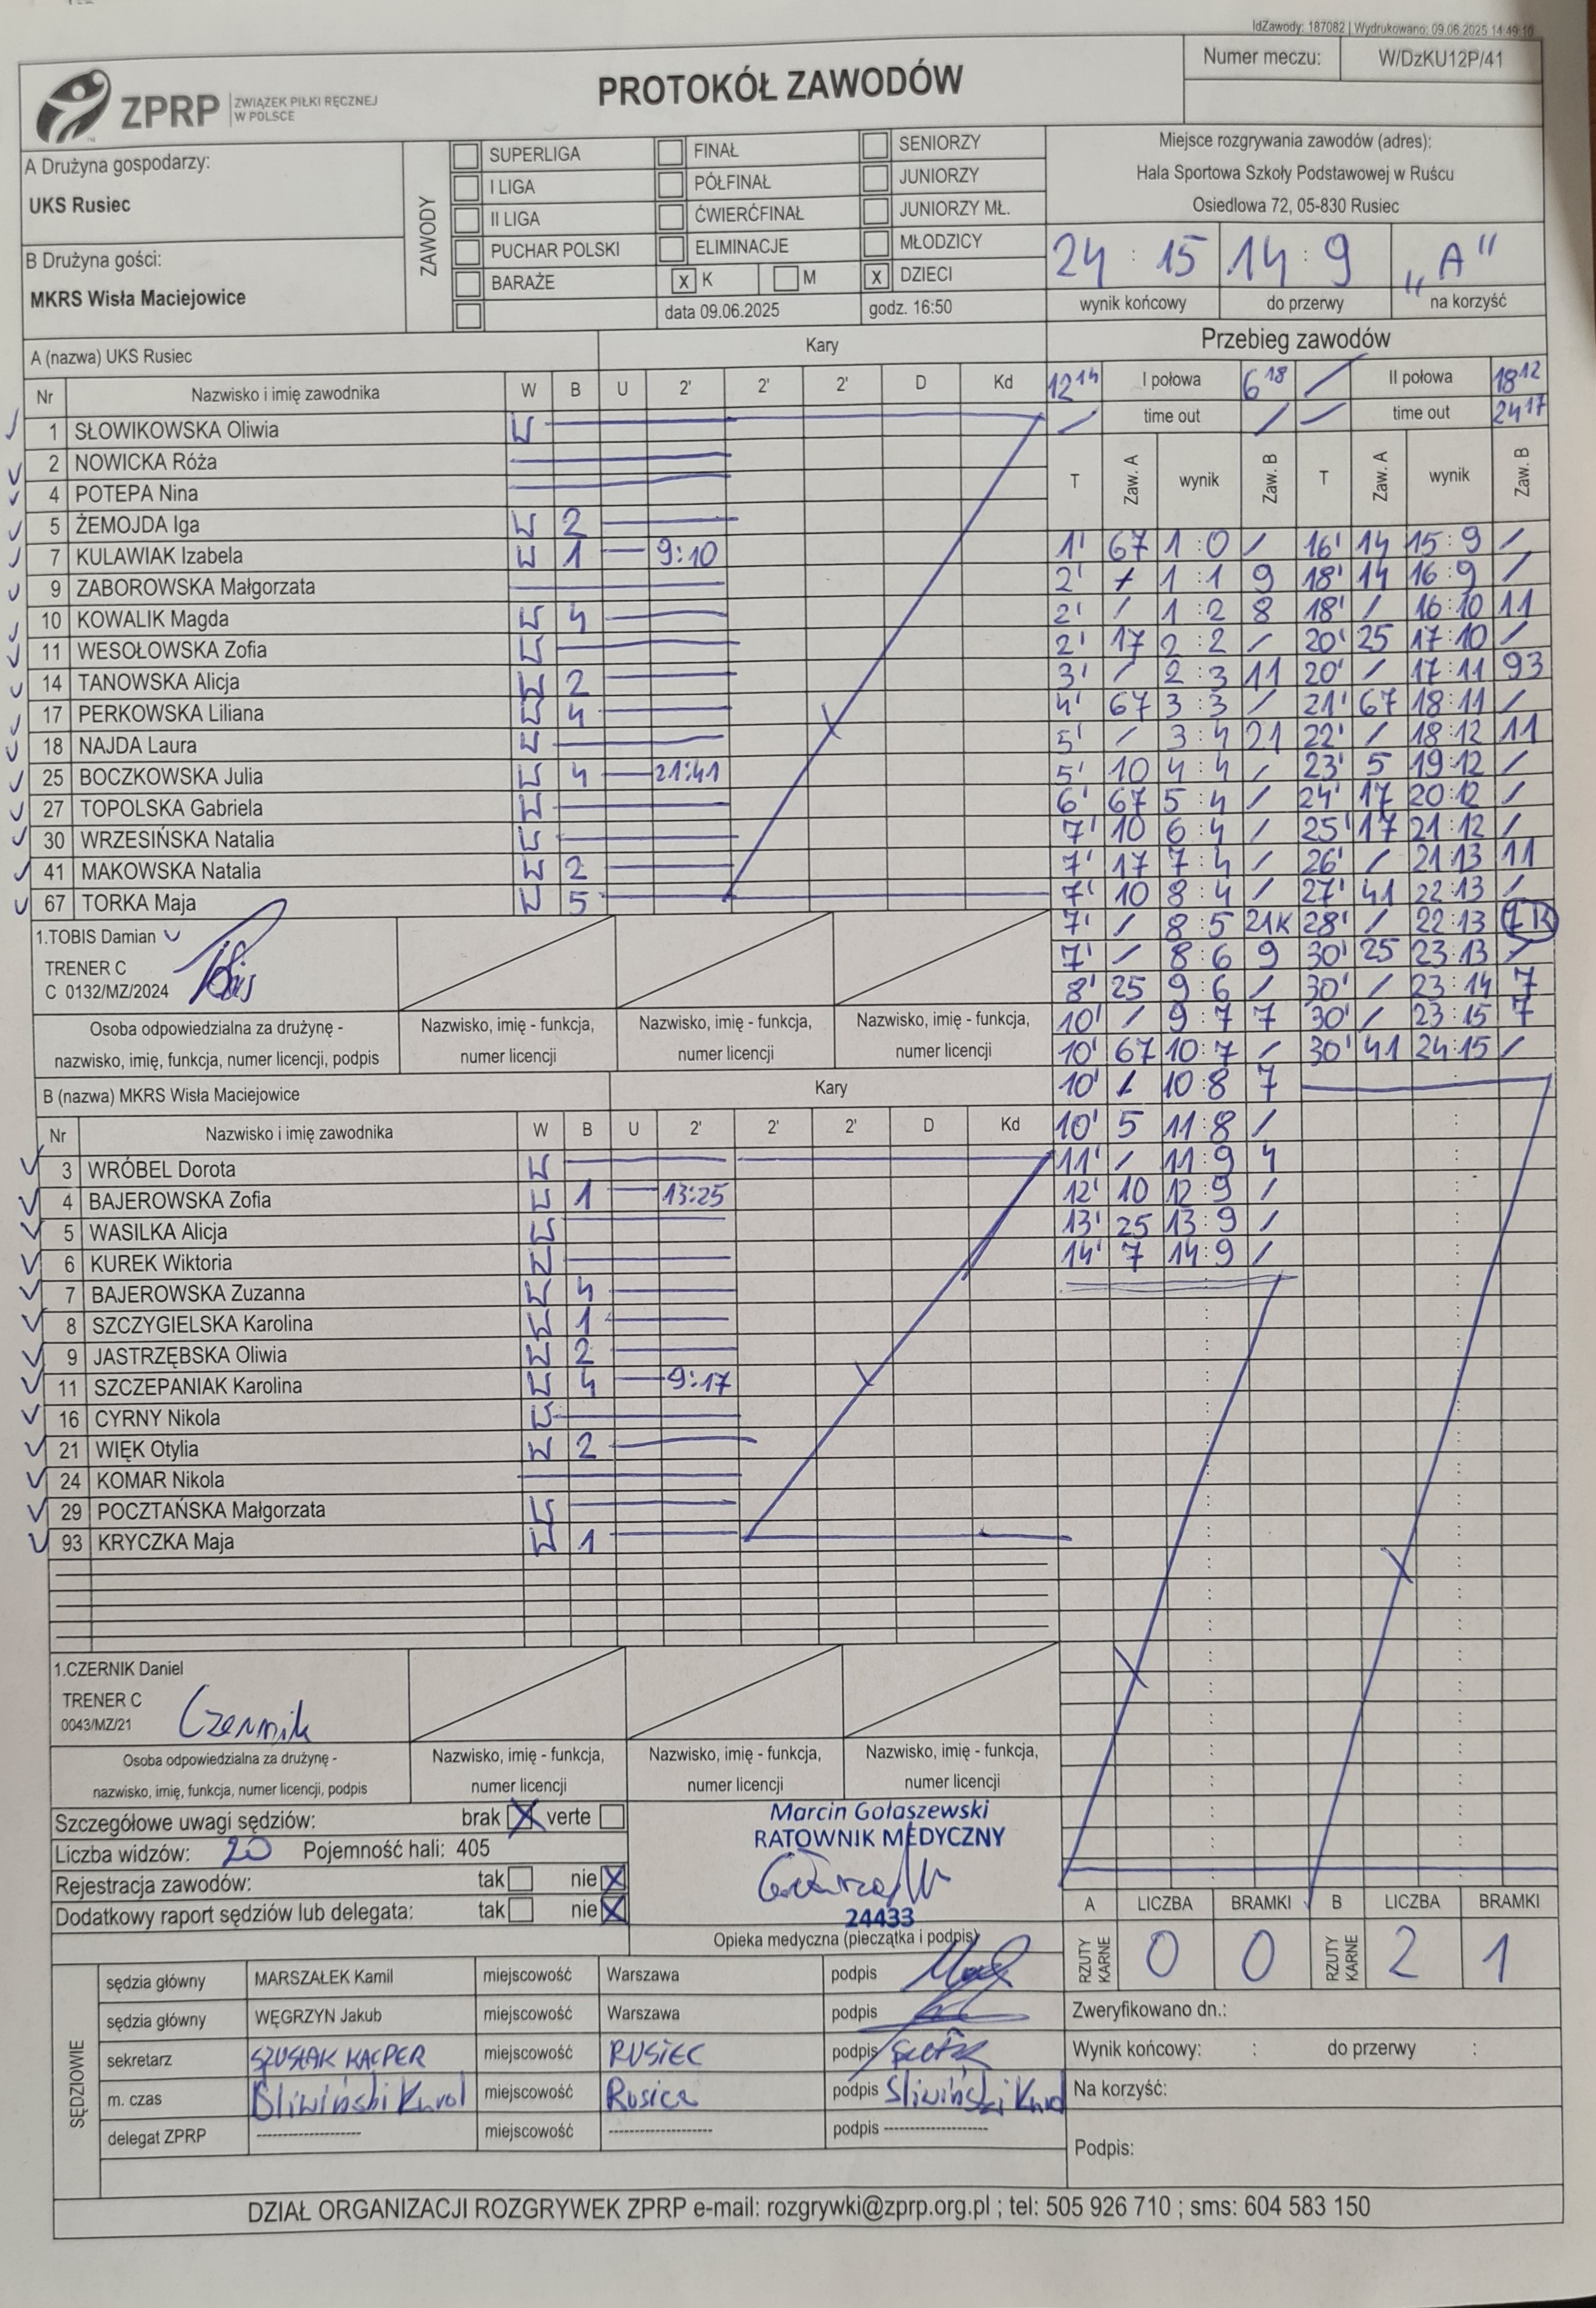 IdZawody: 187082 | Wydrukowano: 09.06.2025 14:49:10
ZPRP ZWIĄZEK PIŁKI RĘCZNEJ W POLSCE
PROTOKÓŁ ZAWODÓW
Numer meczu: W/DzKU12P/41
A Drużyna gospodarzy:
UKS Rusiec
B Drużyna gości:
MKRS Wisła Maciejowice
ZAWODY
SUPERLIGA FINAŁ SENIORZY
I LIGA PÓŁFINAŁ JUNIORZY
II LIGA ĆWIERĆFINAŁ JUNIORZY MŁ.
PUCHAR POLSKI ELIMINACJE MŁODZICY
BARAŻE x K M x DZIECI
data 09.06.2025 godz. 16:50
Miejsce rozgrywania zawodów (adres):
Hala Sportowa Szkoły Podstawowej w Ruścu
Osiedlowa 72, 05-830 Rusiec
24 : 15 14 : 9 „A"
wynik końcowy do przerwy na korzyść
A (nazwa) UKS Rusiec Kary
Nr Nazwisko i imię zawodnika W B U 2' 2' 2' D Kd
1 SŁOWIKOWSKA Oliwia W
2 NOWICKA Róża
4 POTEPA Nina
5 ŻEMOJDA Iga W 2
7 KULAWIAK Izabela W 1 9:10
9 ZABOROWSKA Małgorzata
10 KOWALIK Magda W 4
11 WESOŁOWSKA Zofia W
14 TANOWSKA Alicja W 2
17 PERKOWSKA Liliana W 4
18 NAJDA Laura W
25 BOCZKOWSKA Julia W 4 21:41
27 TOPOLSKA Gabriela W
30 WRZESIŃSKA Natalia W
41 MAKOWSKA Natalia W 2
67 TORKA Maja W 5
1.TOBIS Damian
TRENER C
C 0132/MZ/2024
Osoba odpowiedzialna za drużynę - nazwisko, imię, funkcja, numer licencji, podpis
Nazwisko, imię - funkcja, numer licencji
Nazwisko, imię - funkcja, numer licencji
Nazwisko, imię - funkcja, numer licencji
B (nazwa) MKRS Wisła Maciejowice Kary
Nr Nazwisko i imię zawodnika W B U 2' 2' 2' D Kd
3 WRÓBEL Dorota W
4 BAJEROWSKA Zofia W 1 13:25
5 WASILKA Alicja W
6 KUREK Wiktoria W
7 BAJEROWSKA Zuzanna W 4
8 SZCZYGIELSKA Karolina W 1
9 JASTRZĘBSKA Oliwia W 2
11 SZCZEPANIAK Karolina W 4 9:17
16 CYRNY Nikola W
21 WIĘK Otylia W 2
24 KOMAR Nikola
29 POCZTAŃSKA Małgorzata W
93 KRYCZKA Maja W 1
1.CZERNIK Daniel
TRENER C
0043/MZ/21
Czernik
Osoba odpowiedzialna za drużynę - nazwisko, imię, funkcja, numer licencji, podpis
Nazwisko, imię - funkcja, numer licencji
Nazwisko, imię - funkcja, numer licencji
Nazwisko, imię - funkcja, numer licencji
Przebieg zawodów
12 14 I połowa 6 18 / II połowa 18 12
/ time out / / time out 24 17
T Zaw. A wynik Zaw. B T Zaw. A wynik Zaw. B
1' 67 1:0 / 16' 14 15:9 /
2' / 1:1 9 18' 14 16:9 /
2' / 1:2 8 18' / 16:10 11
2' 17 2:2 / 20' 25 17:10 /
3' / 2:3 11 20' / 17:11 93
4' 67 3:3 / 21' 67 18:11 /
5' / 3:4 21 22' / 18:12 11
5' 10 4:4 / 23' 5 19:12 /
6' 67 5:4 / 24' 17 20:12 /
7' 10 6:4 / 25' 17 21:12 /
7' 17 7:4 / 26' / 21:13 11
7' 10 8:4 / 27' 41 22:13 /
7' / 8:5 21K 28' / 22:13 7K
7' / 8:6 9 30' 25 23:13 /
8' 25 9:6 / 30' / 23:14 7
10' / 9:7 7 30' / 23:15 7
10' 67 10:7 / 30' 41 24:15 /
10' / 10:8 7
10' 5 11:8 /
11' / 11:9 4
12' 10 12:9 /
13' 25 13:9 /
14' 7 14:9 /
Szczegółowe uwagi sędziów: brak X verte
Liczba widzów: 20 Pojemność hali: 405
Rejestracja zawodów: tak nie X
Dodatkowy raport sędziów lub delegata: tak nie X
Marcin Gołaszewski
RATOWNIK MEDYCZNY
24433
Opieka medyczna (pieczątka i podpis)
A LICZBA BRAMKI B LICZBA BRAMKI
RZUTY KARNE 0 0 RZUTY KARNE 2 1
SĘDZIOWIE
sędzia główny MARSZAŁEK Kamil miejscowość Warszawa podpis
sędzia główny WĘGRZYN Jakub miejscowość Warszawa podpis
sekretarz SZUSTAK KACPER miejscowość RUSIEC podpis
m. czas Śliwiński Karol miejscowość Rusiec podpis Śliwiński Karol
delegat ZPRP -------------------- miejscowość -------------------- podpis --------------------
Zweryfikowano dn.:
Wynik końcowy: : do przerwy :
Na korzyść:
Podpis:
DZIAŁ ORGANIZACJI ROZGRYWEK ZPRP e-mail: rozgrywki@zprp.org.pl ; tel: 505 926 710 ; sms: 604 583 150